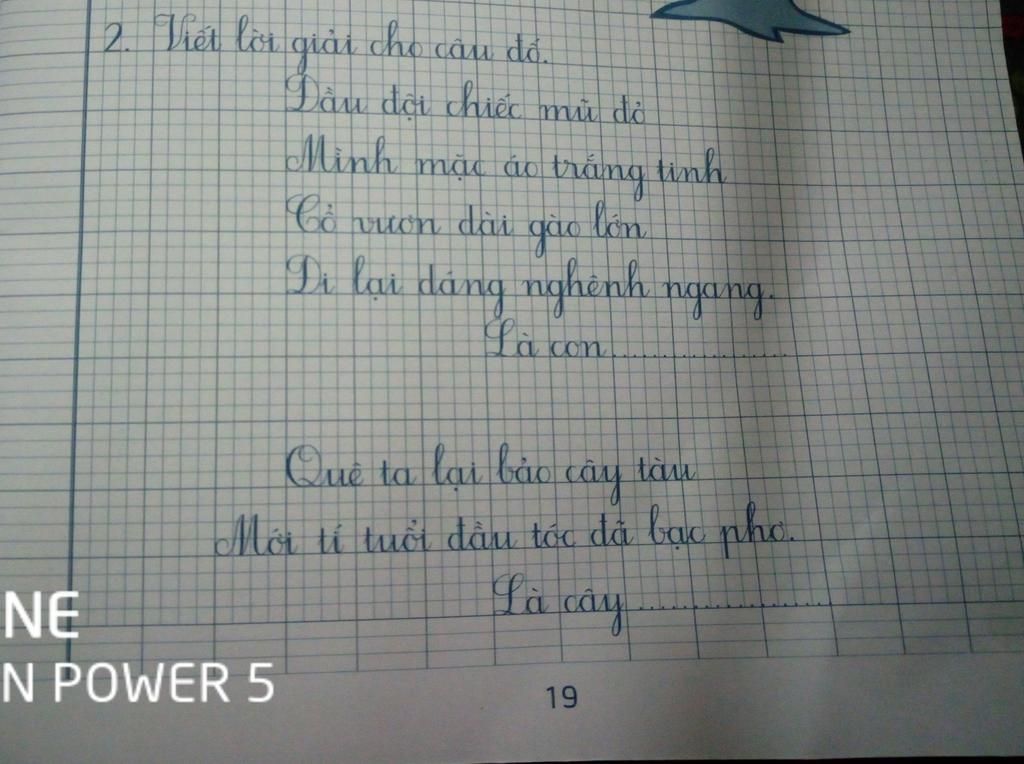 2. Viết lời giải cho câu đố.
Đầu đội chiếc mũ đỏ
Mình mặc áo trắng tinh
Cổ vươn dài gào lớn
Đi lại dáng nghênh ngang.
Là con..................
Quê ta lại bảo cây tàu
Mới tí tuổi đầu tóc đã bạc phơ.
Là cây....................
NE
N POWER 5
19